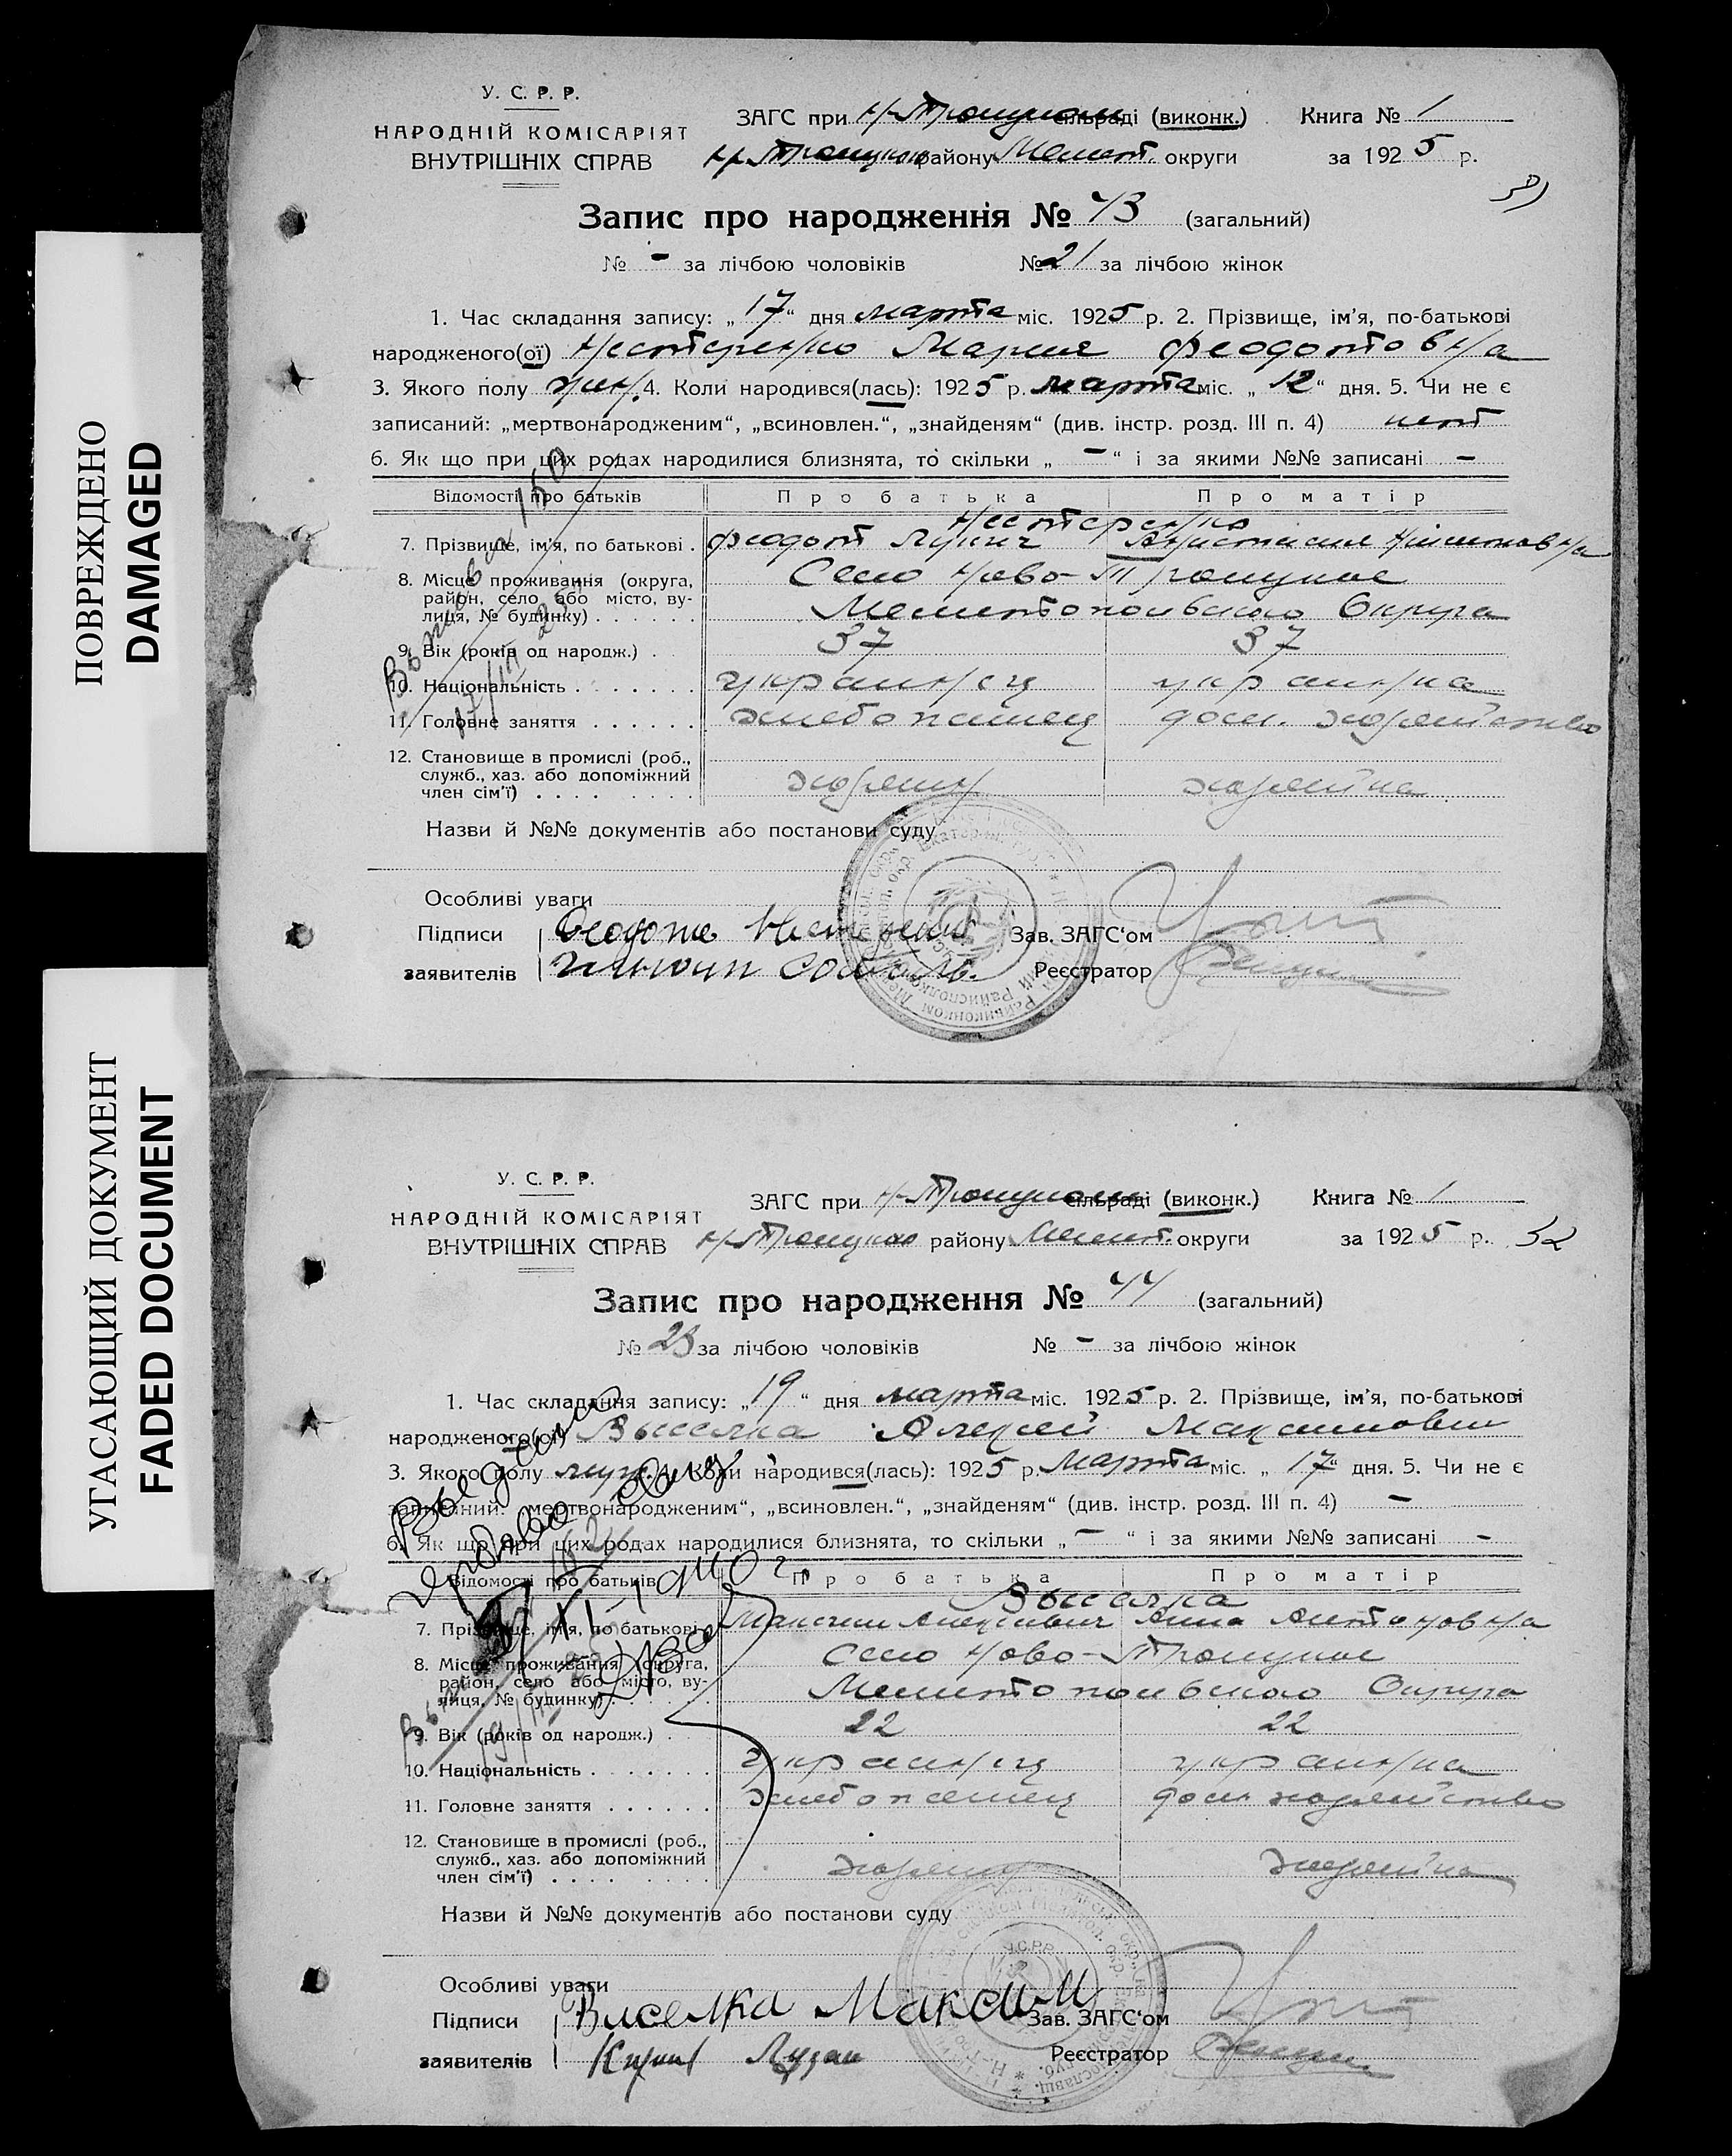 ПОВРЕЖДЕНО
DAMAGED
УГАСАЮЩИЙ ДОКУМЕНТ
FADED DOCUMENT
У. С. Р. Р.
НАРОДНІЙ КОМІСАРІЯТ
ВНУТРІШНІХ СПРАВ
ЗАГС при Н-Троицком сільраді (виконк.) Книга № 1
Н-Троицкого району Мелит. округи за 1925 р.
Запис про народження № 43 (загальний)
№ - за лічбою чоловіків № 21 за лічбою жінок
1. Час складання запису: „17“ дня марта міс. 1925 р. 2. Прізвище, ім'я, по-батькові
народженого(ої) Нестеренко Мария Феодотовна
3. Якого полу жен. 4. Коли народився(лась): 1925 р. марта міс. „12“ дня. 5. Чи не є
записаний: „мертвонародженим“, „всиновлен.“, „знайденям“ (див. інстр. розд. III п. 4) нет
6. Як що при цих родах народилися близнята, то скільки „-“ і за якими №№ записані -
Відомості про батьків Про батька Про матір
Нестеренко
7. Прізвище, ім'я, по батькові . Феодот Лукич Анастасия
8. Місце проживання (округа, район, село або місто, вулиця, № будинку) . . . . . . Село Ново-Троицкое
Мелитопольского Округа
9. Вік (років од народж.) . 37 37
10. Національність . . . . . . . украинец украинка
11. Головне заняття . . . . . . хлебопашец дом. хозяйство
12. Становище в промислі (роб., служб., хаз. або допоміжний член сім'ї) . . . . хозяин хозяйка
Назви й №№ документів або постанови суду
Особливі уваги
Підписи Нестеренко Зав. ЗАГС'ом
заявителів Реєстратор
У. С. Р. Р.
НАРОДНІЙ КОМІСАРІЯТ
ВНУТРІШНІХ СПРАВ
ЗАГС при Н-Троицком сільраді (виконк.) Книга № 1
Н-Троицкого району Мелит. округи за 1925 р. 52
Запис про народження № 44 (загальний)
№ 23 за лічбою чоловіків № - за лічбою жінок
1. Час складання запису: „19“ дня марта міс. 1925 р. 2. Прізвище, ім'я, по-батькові
народженого(ої) Выселка Алексей Максимович
3. Якого полу муж. 4. Коли народився(лась): 1925 р. марта міс. „17“ дня. 5. Чи не є
записаний: „мертвонародженим“, „всиновлен.“, „знайденям“ (див. інстр. розд. III п. 4) -
6. Як що при цих родах народилися близнята, то скільки „-“ і за якими №№ записані -
Відомості про батьків Про батька Про матір
Выселка
7. Прізвище, ім'я, по батькові . Максим Алексеевич Анна Антоновна
8. Місце проживання (округа, район, село або місто, вулиця, № будинку) . . . . . . Село Ново-Троицкое
Мелитопольского Округа
9. Вік (років од народж.) . 22 22
10. Національність . . . . . . . украинец украинка
11. Головне заняття . . . . . . хлебопашец дом. хозяйство
12. Становище в промислі (роб., служб., хаз. або допоміжний член сім'ї) . . . . хозяин хозяйка
Назви й №№ документів або постанови суду
Особливі уваги
Підписи Виселка Максим Зав. ЗАГС'ом
заявителів Реєстратор